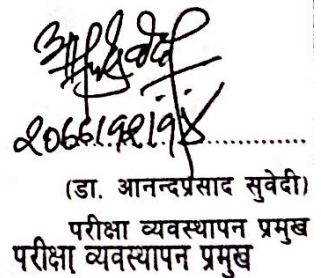 २०७७।१२।१४
(डा. आनन्दप्रसाद सुवेदी)
परीक्षा व्यवस्थापन प्रमुख
परीक्षा व्यवस्थापन प्रमुख